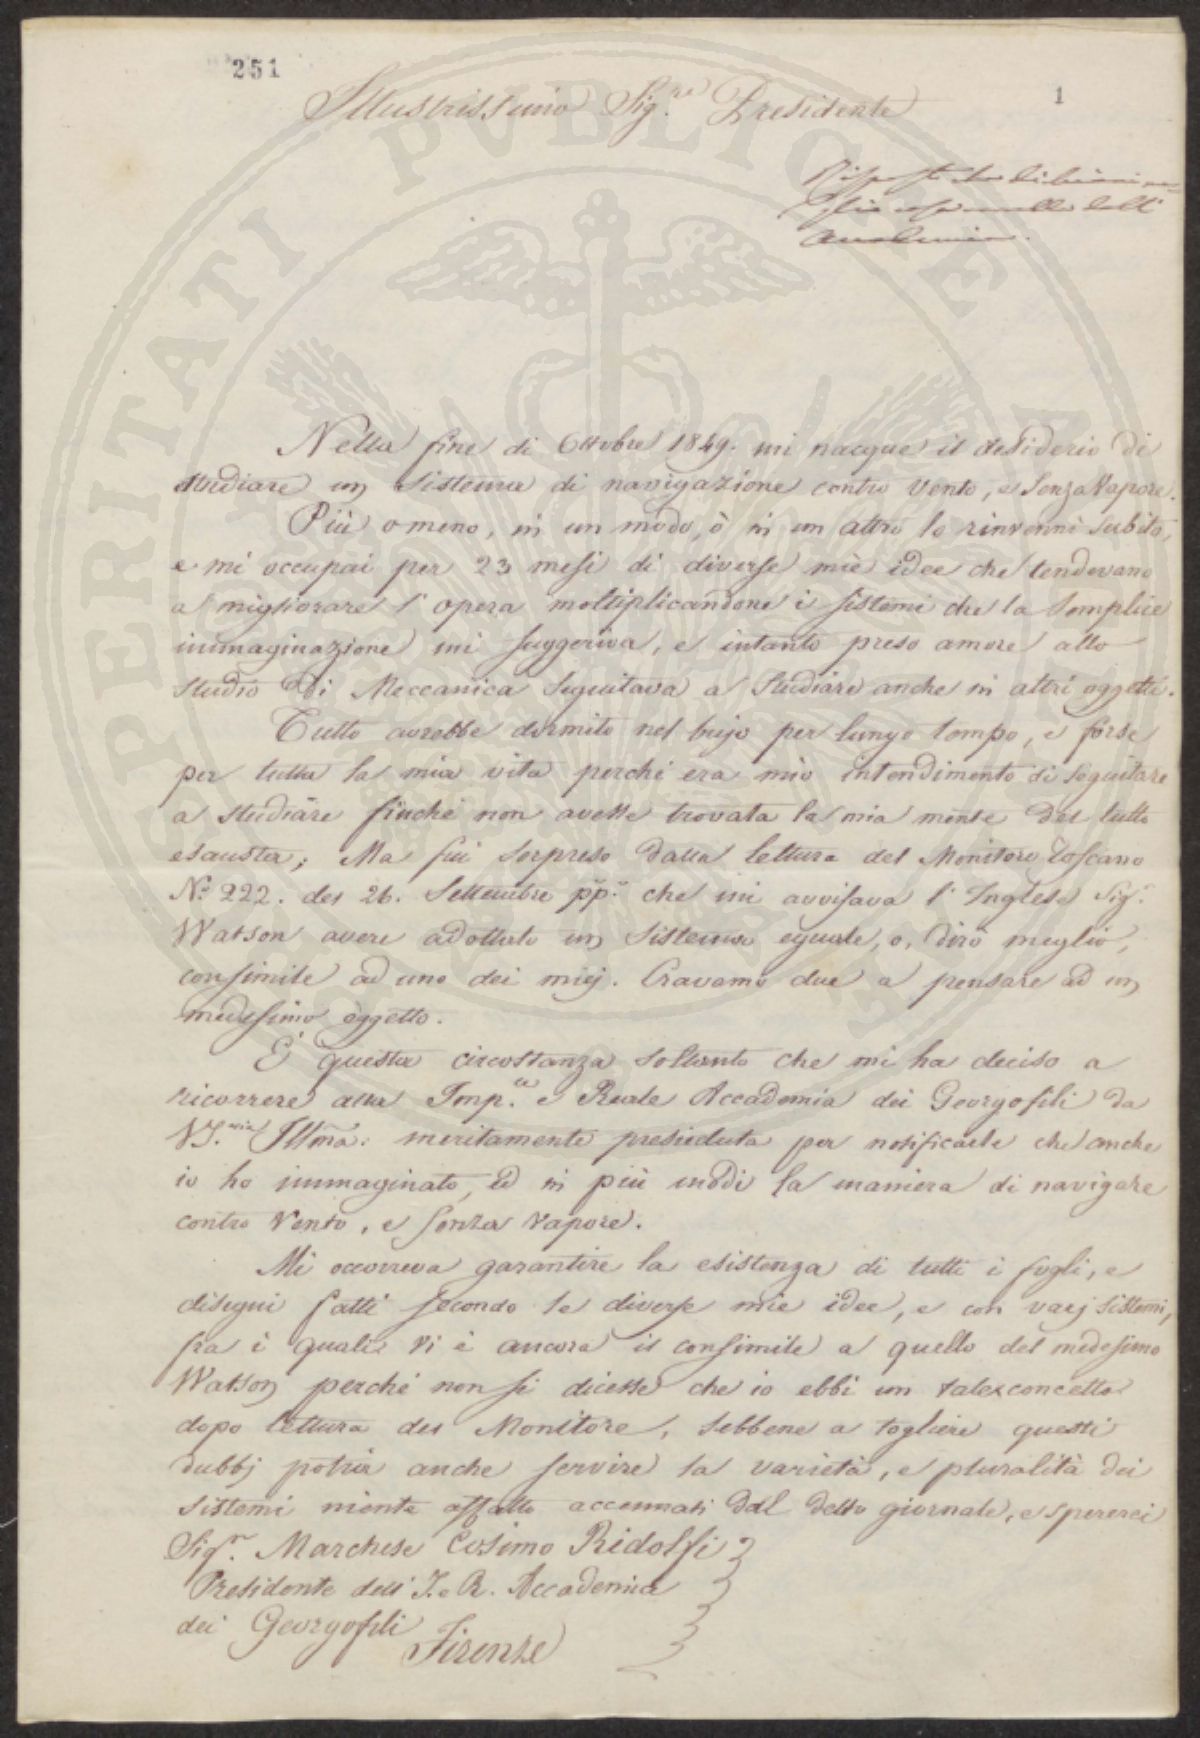 251
1
Illustrissimo Sig.re Presidente
Nella fine di Ottobre 1849. mi nacque il desiderio di
studiare un sistema di navigazione contro vento, e senza Vapore.
Più o meno, in un modo, ò in un altro lo rinvenni subito,
e mi occupai per 23 mesi di diverse mie idee che tendevano
a migliorare l'opera moltiplicandone i sistemi che la semplice
immaginazione mi suggeriva, e intanto preso amore allo
studio di Meccanica seguitava a studiare anche in altri oggetti.
Tutto avrebbe dormito nel bujo per lungo tempo, e forse
per tutta la mia vita perché era mio intendimento di seguitare
a studiare finché non avesse trovata la mia mente del tutto
esausta; Ma fui sorpreso dalla lettura del Monitore Toscano
N.º 222. del 26. Settembre pp.º che mi avvisava l'Inglese Sig.r
Watson avere adottato un sistema eguale, o, dirò meglio,
consimile ad uno dei miej. Eravamo due a pensare ad un
medesimo oggetto.
È questa circostanza soltanto che mi ha deciso a
ricorrere alla Imp.le e Reale Accademia dei Georgofili da
VS. Illma: meritamente presieduta per notificarle che anche
io ho immaginato, ed in più modi la maniera di navigare
contro Vento, e senza Vapore.
Mi occorreva garantire la esistenza di tutti i fogli, e
disegni fatti secondo le diverse mie idee, e con varj sistemi,
fra i quali vi è ancora il consimile a quello del medesimo
Watson perché non si dicesse che io ebbi un tale concetto
dopo lettura del Monitore, sebbene a togliere questi
dubbj potria anche servire la varietà, e pluralità dei
sistemi niente affatto accennati dal detto giornale, e spererei
Sig.r Marchese Cosimo Ridolfi
Presidente dell'I. e R. Accademia
dei Georgofili
Firenze
PROSPERITATI PUBLICAE